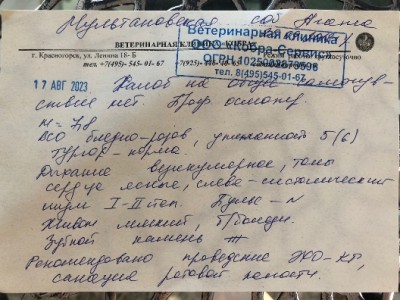 Мультановская соб Агата
Ветеринарная клиника
ООО "Кобра-Сервис"
ВЕТЕРИНАРНАЯ КЛИНИКА
ОГРН
г. Красногорск, ул. Ленина 18-Б
круглосуточно
тел. +7(495)- 545- 01- 67
+7(925)-
тел. 8(495)545-01-67
17 АВГ 2023 Жалоб на общее самочув-
ствие нет. Проф осмотр.
ВСО бледно-розов, упитанность 5(6)
тургор - норма,
Дыхание везикулярное, тоны
сердце ясные, слева - систолический
шум I-II степ. Пульс - N
Живот мягкий, б/болезн.
Зубной камень
Рекомендовано проведение ЭХО-КГ,
санация ротовой полости.